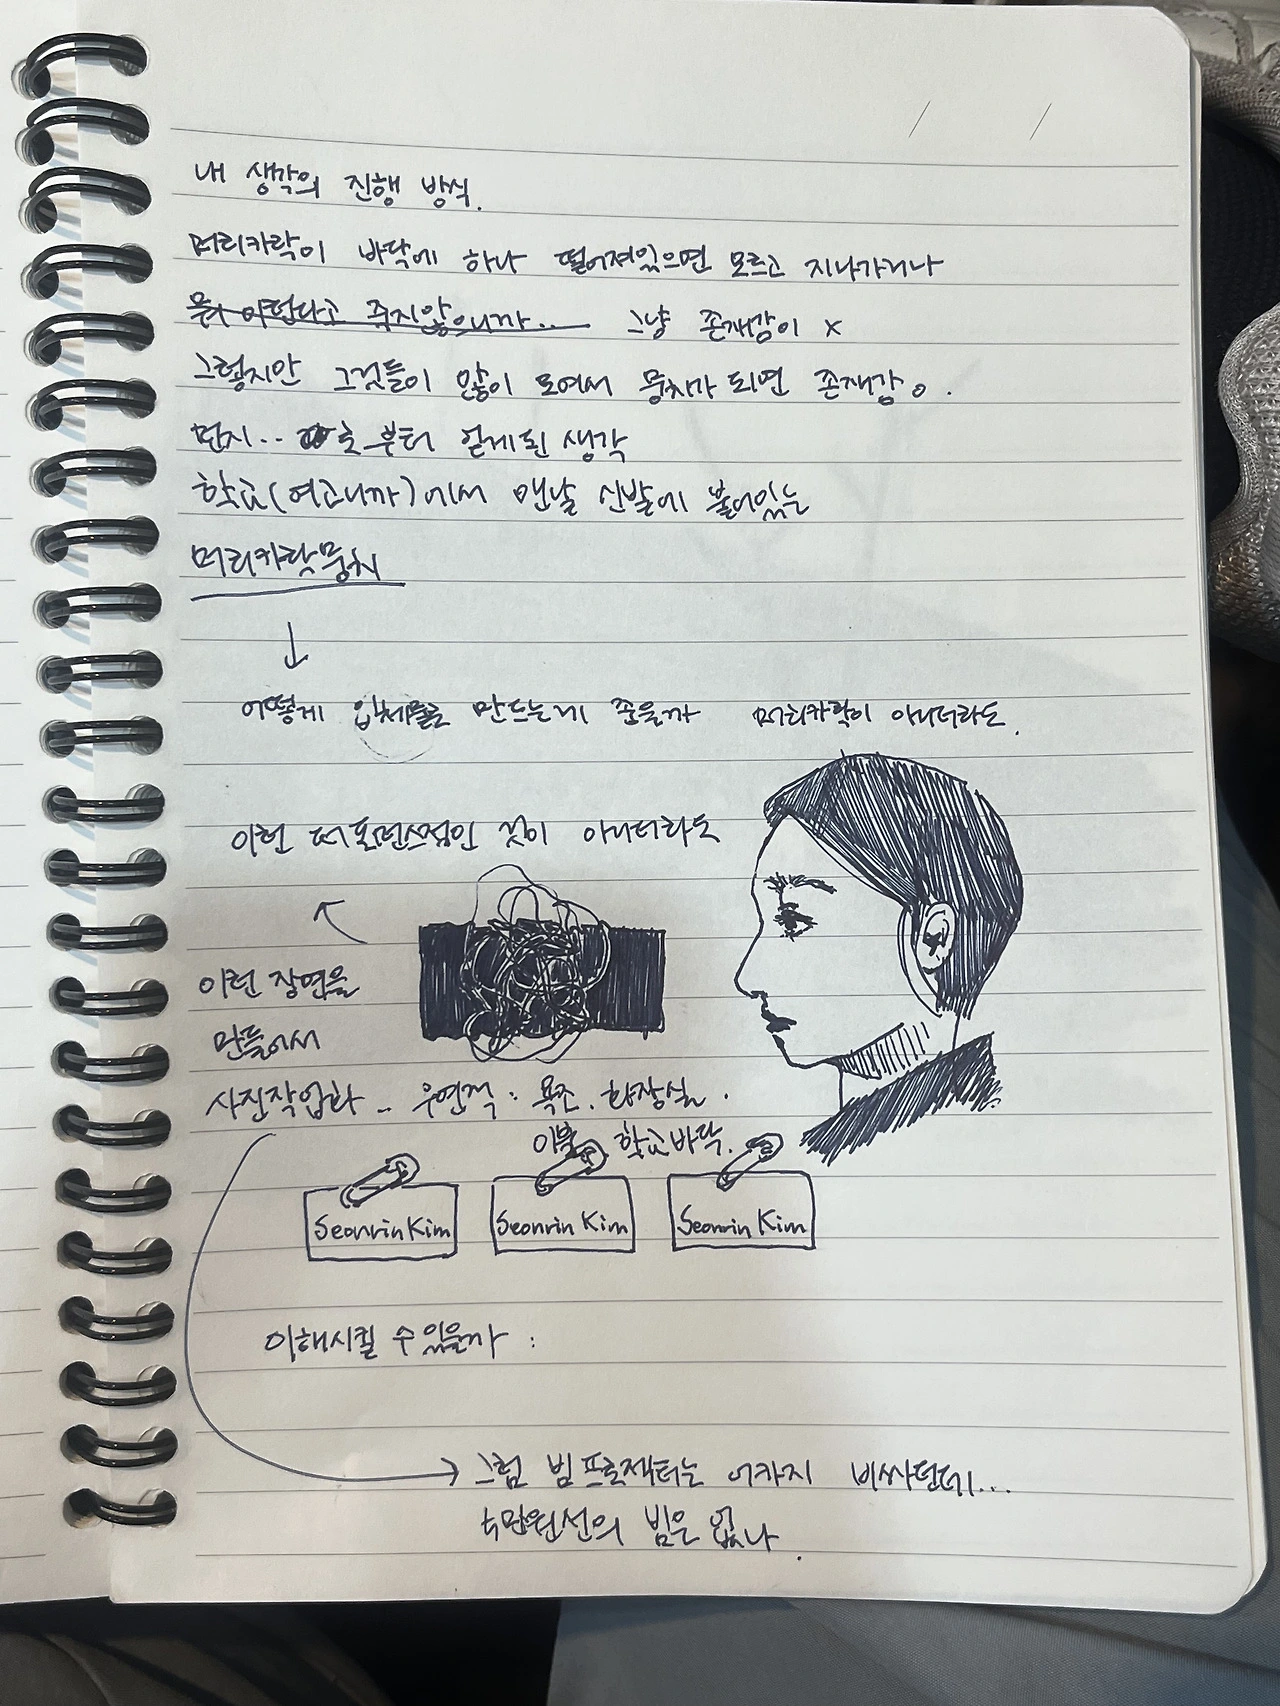 내 생각의 진행 방식.
머리카락이 바닥에 하나 떨어져있으면 모르고 지나가거나
그냥 존재감이 x
그렇지안 그것들이 많이 모여서 뭉치가 되면 존재감o.
먼지.. 로부터 얻게된 생각
학교(여고니까)에서 맨날 신발에 붙어있는
머리카락뭉치
↓
어떻게 입체물로 만드는게 좋을까 머리카락이 아니더라도.
이런 퍼포먼스적인 것이 아니더라도
이런 장면을
만들어서
사진작업화.. 우연적 : 욕조. 화장실.
이불 학교바닥.
Seonrin Kim Seonrin Kim Seonrin Kim
이해시킬 수 있을까 :
→ 그럼 빔프로젝터는 어카지 비싸던데...
4만원선의 빔은 없나.